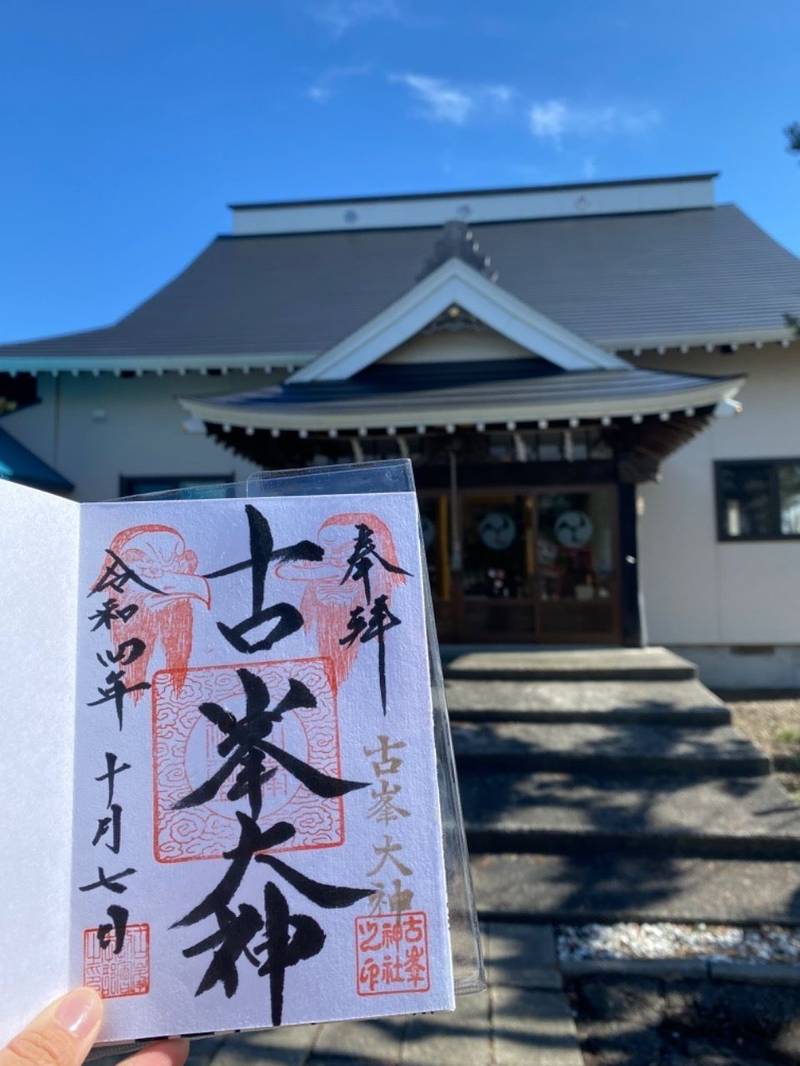 奉拝
古峯大神
古峯大神
古峯
神社
之印
令和四年十月七日